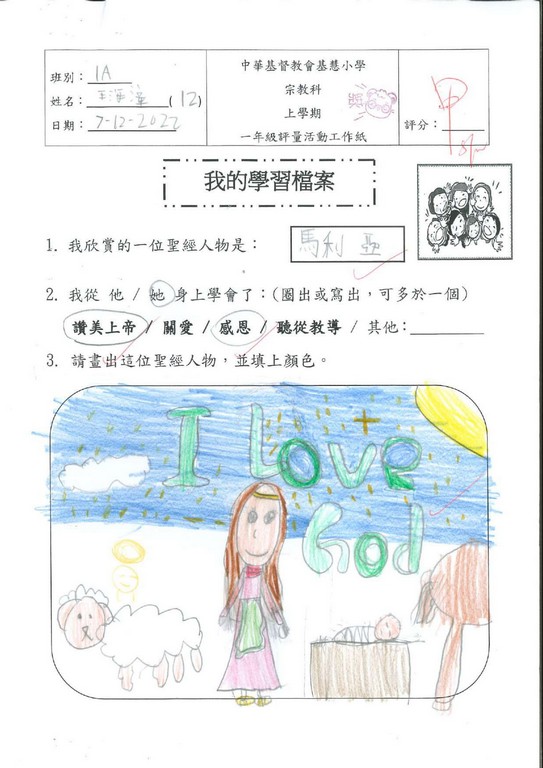 中華基督教會基慧小學
宗教科
上學期
一年級評量活動工作紙
班別：1A
姓名：(12)
日期：7-12-2022
評分：甲
我的學習檔案
1. 我欣賞的一位聖經人物是：馬利亞
2. 我從 他 / 她 身上學會了：（圈出或寫出，可多於一個）
讚美上帝 / 關愛 / 感恩 / 聽從教導 / 其他：
3. 請畫出這位聖經人物，並填上顏色。
I Love
God